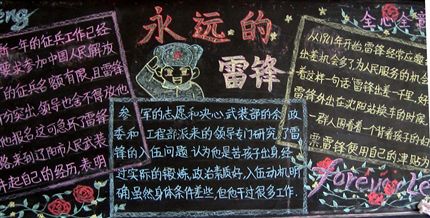 eng
永远的
雷锋
全心全意
新一年的征兵工作已经
要求参加中国人民解放
的征兵名额有限,且雷锋
分突出,领导也舍不得放他
他报名,这可急坏了雷锋
路来到辽阳市人民武装
起自己的经历,表明
参军的志愿和决心武装部的余政
委和工程部派来的领导专门研究了雷
锋的入伍问题,认为他是苦孩子出身,经
过实际的锻炼,政治素质好,入伍动机明
确,虽然身体条件差些,但他干过很多工作,
从1961年开始,雷锋经常应邀
出差机会多了,为人民服务的机会
着这样一句话"雷锋出差一千里,好
雷锋外出在沈阳站换车的时候,
一群人围看着一个背着孩子的
票,雷锋使用自己的津贴为
forever Le